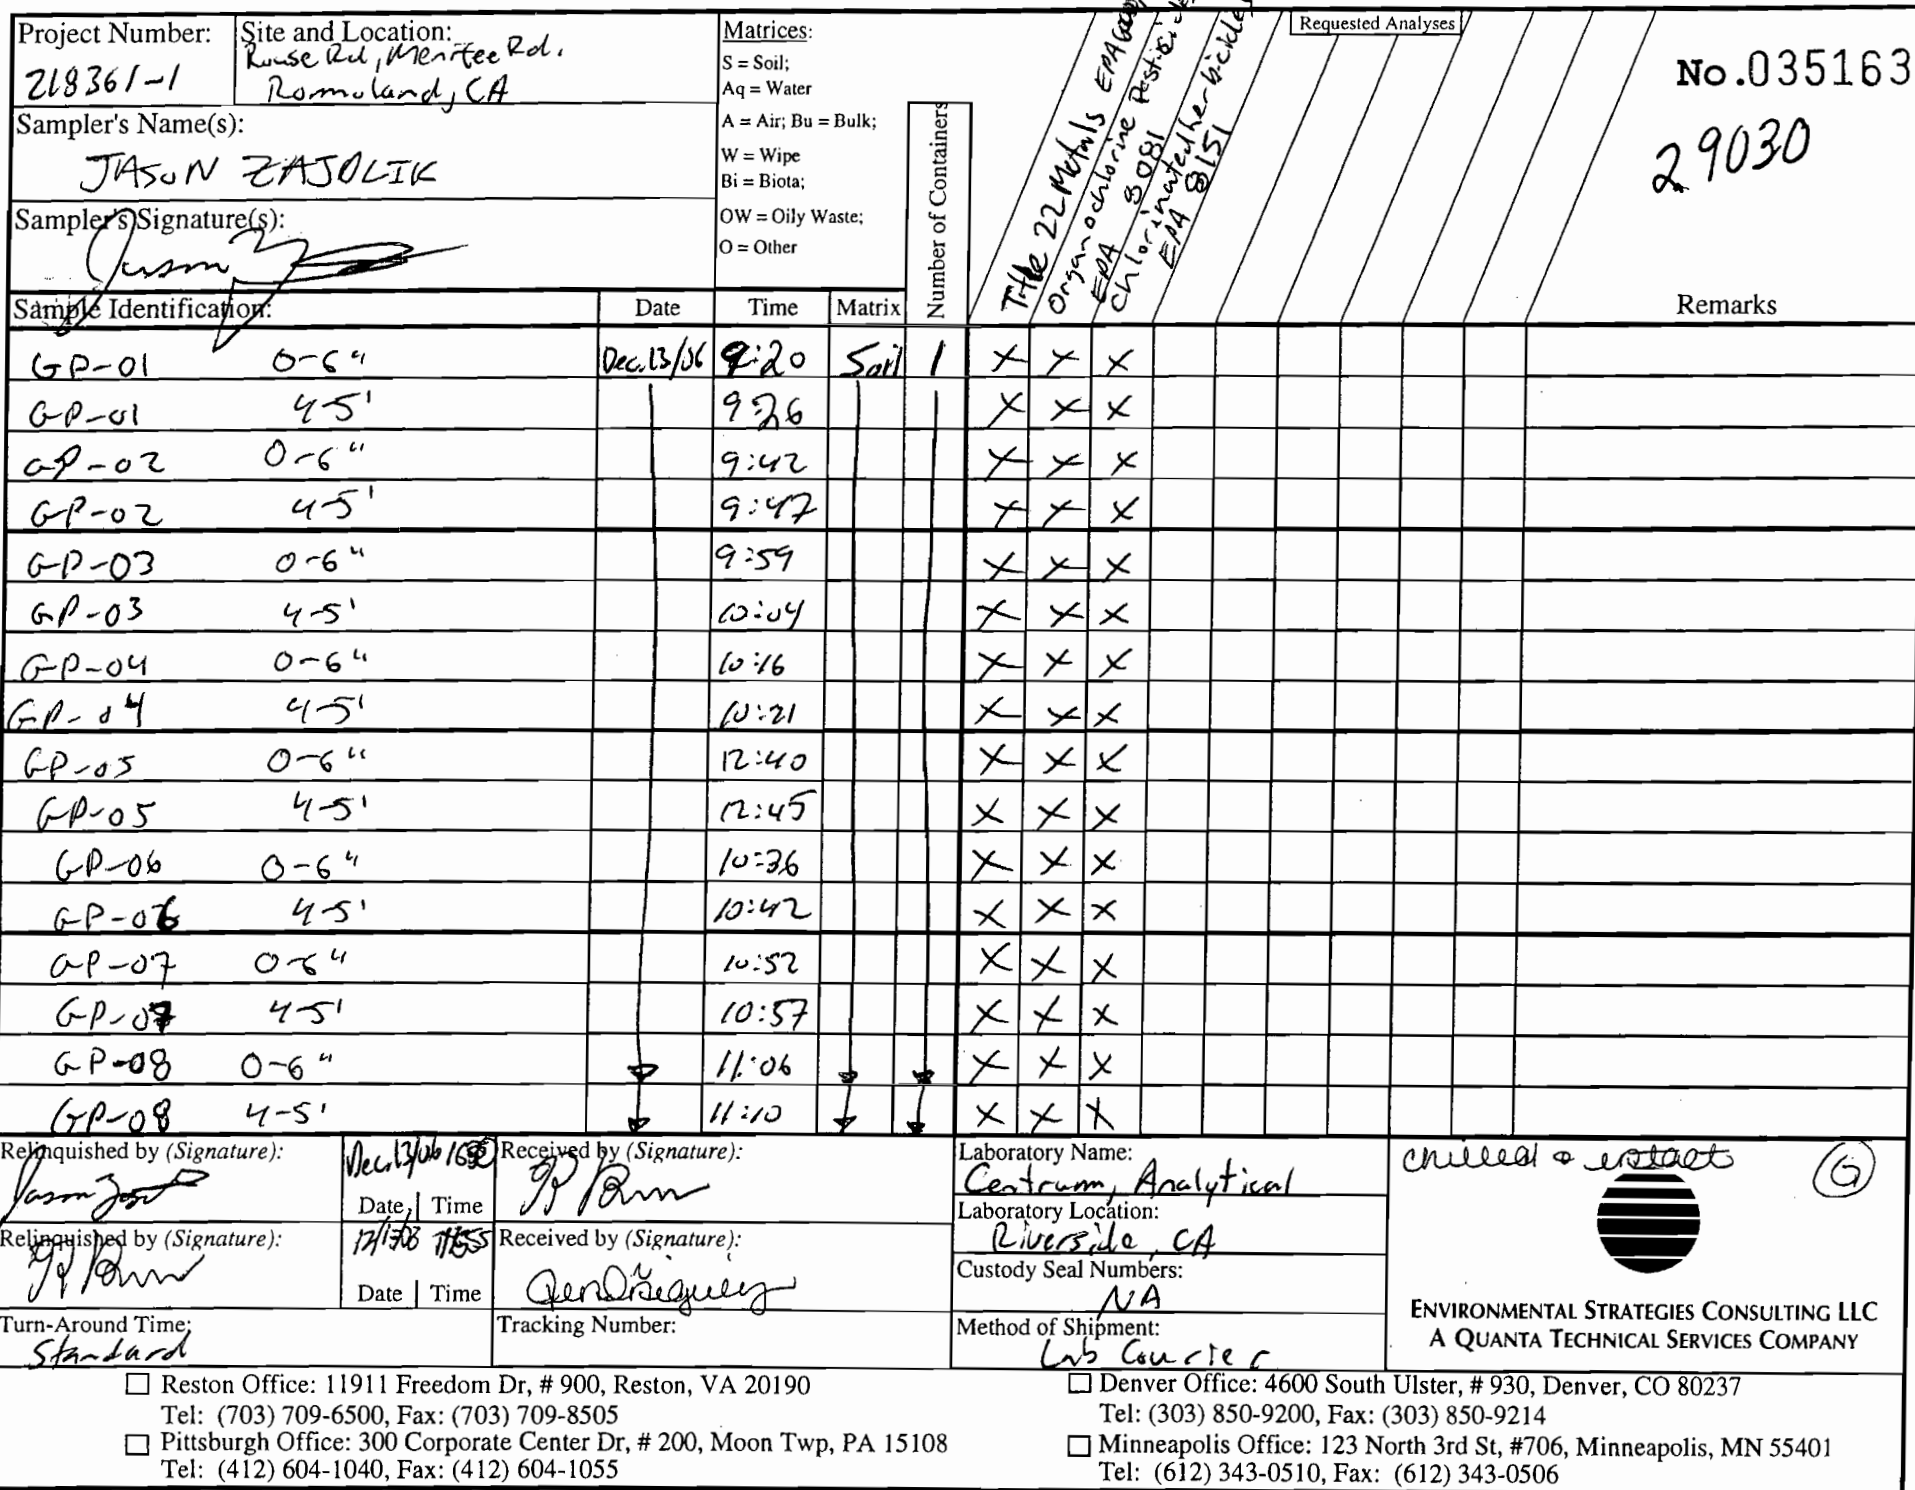 Project Number:
218361-1
Site and Location:
Rouse Rd, Menifee Rd.
Romoland, CA
Sampler's Name(s):
JASON ZAJDLIK
Sampler's Signature(s):
Jason
Matrices:
S = Soil;
Aq = Water
A = Air; Bu = Bulk;
W = Wipe
Bi = Biota;
OW = Oily Waste;
O = Other
Number of Containers
Title 22 Metals EPA
Organochlorine Pesticide
EPA 8081
Chlorinated herbicides
EPA 8151
Requested Analyses
No.035163
29030
Sample Identification: Date Time Matrix Remarks
GP-01 0-6" Dec.13/06 9:20 Soil 1 X X X
GP-01 4-5' 9:26 X X X
GP-02 0-6" 9:42 X X X
GP-02 4-5' 9:47 X X X
GP-03 0-6" 9:59 X X X
GP-03 4-5' 10:04 X X X
GP-04 0-6" 10:16 X X X
GP-04 4-5' 10:21 X X X
GP-05 0-6" 12:40 X X X
GP-05 4-5' 12:45 X X X
GP-06 0-6" 10:36 X X X
GP-06 4-5' 10:42 X X X
GP-07 0-6" 10:52 X X X
GP-07 4-5' 10:57 X X X
GP-08 0-6" 11:06 X X X
GP-08 4-5' 11:10 X X X
Relinquished by (Signature):
Jason
Dec.13/06
Date Time
Received by (Signature):
Relinquished by (Signature):
Date Time
Received by (Signature):
Turn-Around Time:
Standard
Tracking Number:
Laboratory Name:
Centrum Analytical
Laboratory Location:
Riverside, CA
Custody Seal Numbers:
NA
Method of Shipment:
Lab Courier
chilled & intact G
ENVIRONMENTAL STRATEGIES CONSULTING LLC
A QUANTA TECHNICAL SERVICES COMPANY
Reston Office: 11911 Freedom Dr, # 900, Reston, VA 20190
Tel: (703) 709-6500, Fax: (703) 709-8505
Pittsburgh Office: 300 Corporate Center Dr, # 200, Moon Twp, PA 15108
Tel: (412) 604-1040, Fax: (412) 604-1055
Denver Office: 4600 South Ulster, # 930, Denver, CO 80237
Tel: (303) 850-9200, Fax: (303) 850-9214
Minneapolis Office: 123 North 3rd St, #706, Minneapolis, MN 55401
Tel: (612) 343-0510, Fax: (612) 343-0506